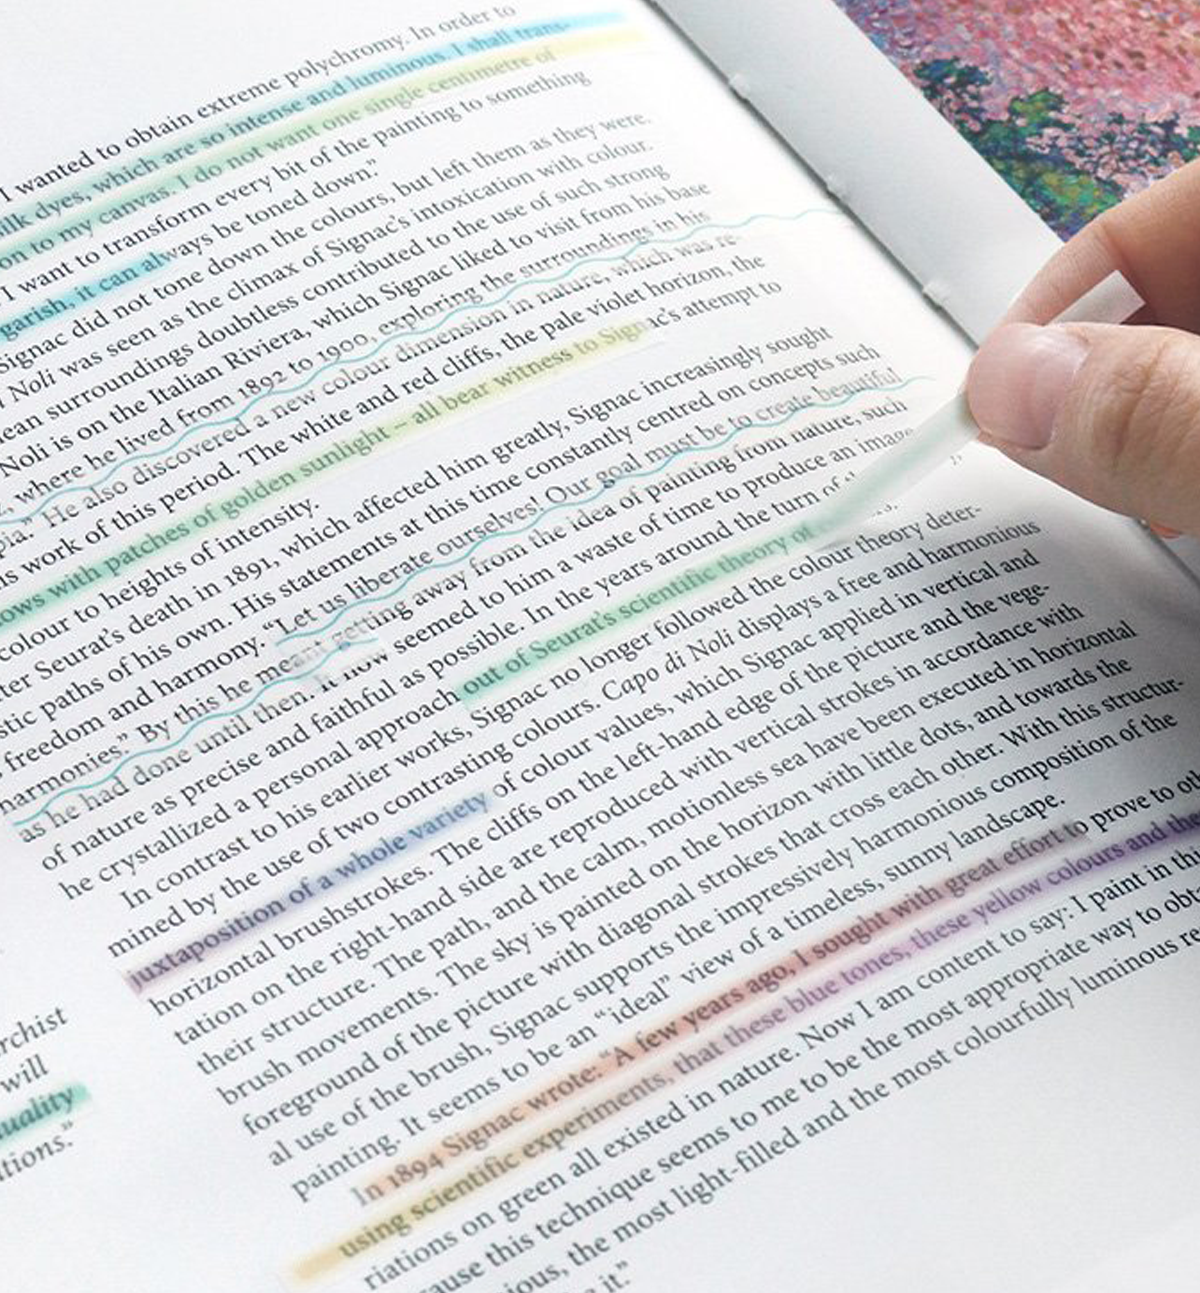 I wanted to obtain extreme polychromy. In order to
silk dyes, which are so intense and luminous. I shall trans-
on to my canvas. I do not want one single centimetre of
I want to transform every bit of the painting to something
garish, it can always be toned down."
Signac did not tone down the colours, but left them as they were.
Noli was seen as the climax of Signac's intoxication with colour.
surroundings doubtless contributed to the use of such strong
Noli is on the Italian Riviera, which Signac liked to visit from his base
where he lived from 1892 to 1900, exploring the surroundings in his
He also discovered a new colour dimension in nature, which was re-
work of this period. The white and red cliffs, the pale violet horizon, the
with patches of golden sunlight – all bear witness to Signac's attempt to
colour to heights of intensity.
Seurat's death in 1891, which affected him greatly, Signac increasingly sought
paths of his own. His statements at this time constantly centred on concepts such
freedom and harmony. "Let us liberate ourselves! Our goal must be to create beautiful
harmonies." By this he meant getting away from the idea of painting from nature, such
as he had done until then. It now seemed to him a waste of time to produce an image
of nature as precise and faithful as possible. In the years around the turn of
he crystallized a personal approach out of Seurat's scientific theory of
In contrast to his earlier works, Signac no longer followed the colour theory deter-
mined by the use of two contrasting colours. Capo di Noli displays a free and harmonious
juxtaposition of a whole variety of colour values, which Signac applied in vertical and
horizontal brushstrokes. The cliffs on the left-hand edge of the picture and the vege-
tation on the right-hand side are reproduced with vertical strokes in accordance with
their structure. The path, and the calm, motionless sea have been executed in horizontal
brush movements. The sky is painted on the horizon with little dots, and towards the
foreground of the picture with diagonal strokes that cross each other. With this structur-
al use of the brush, Signac supports the impressively harmonious composition of the
painting. It seems to be an "ideal" view of a timeless, sunny landscape.
In 1894 Signac wrote: "A few years ago, I sought with great effort to prove to
using scientific experiments, that these blue tones, these yellow colours and
riations on green all existed in nature. Now I am content to say: I paint in
this technique seems to me to be the most appropriate way to
the most light-filled and the most colourfully luminous
it."
will